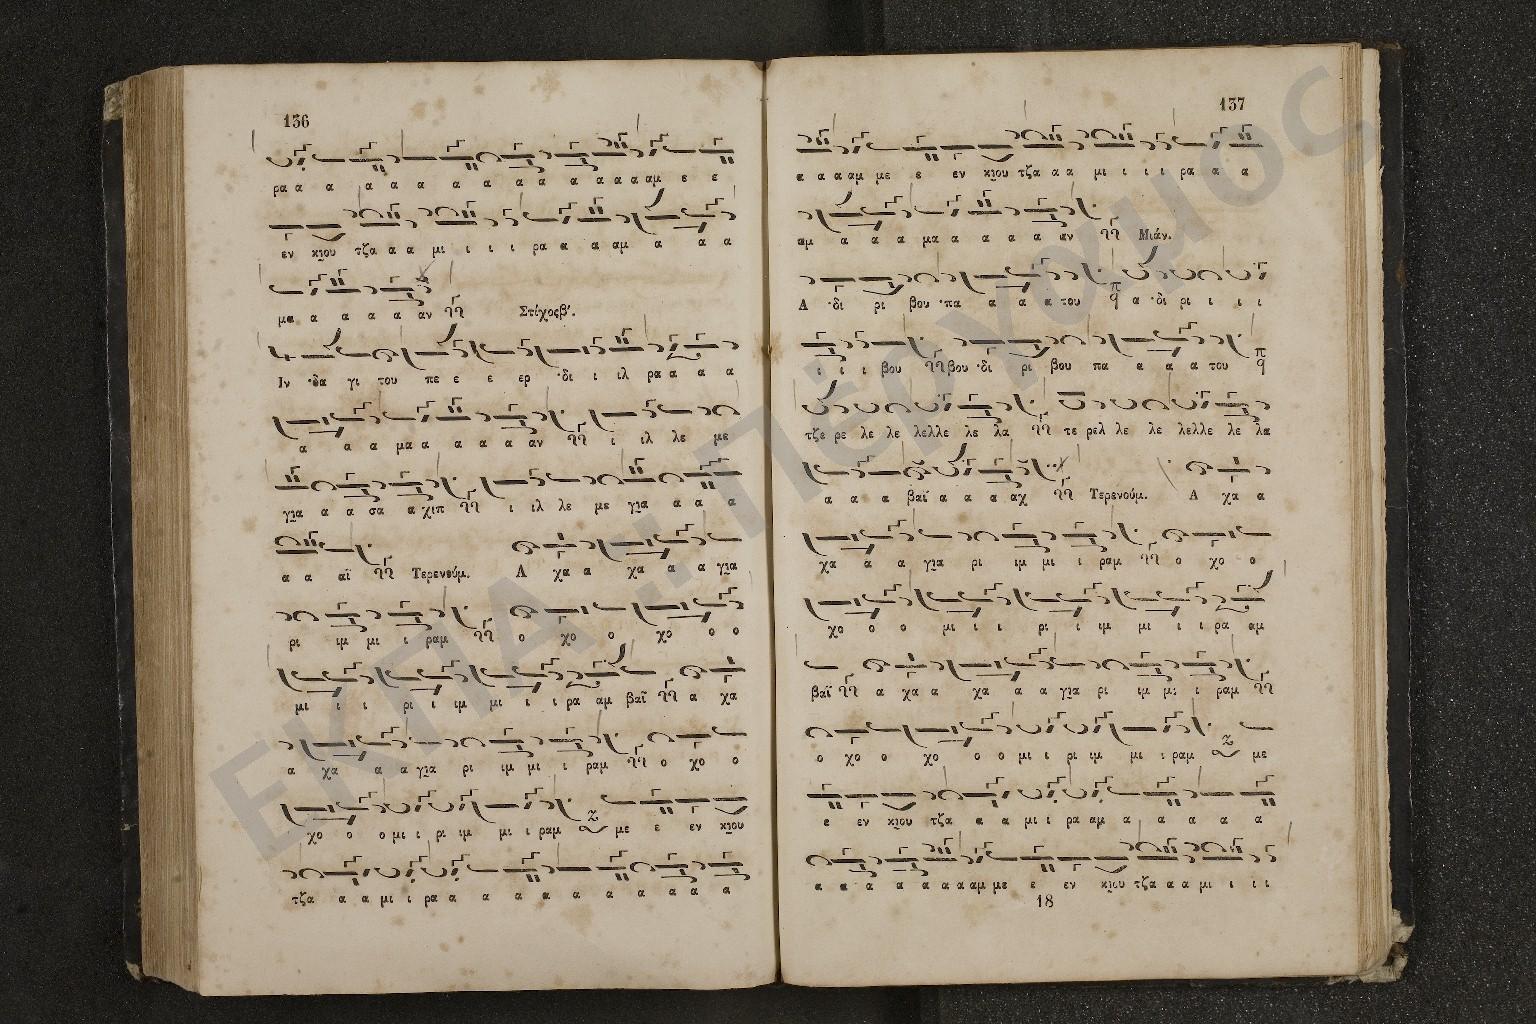 136
ρα α α α α α α α α α α α α αμ ε ε
εν κιου τζα α α μι ι ι ι ρα α α αμ α α α
μα α α α α αν
Στίχος β΄.
Ιν ·δα γι του πε ε ε ερ ·δι ι ιλ ρα α α α
α α α μα α α α α αν ι ιλ λε με
για α α σα α χιπ ι ιλ λε με για α α α
α α αϊ Τερενούμ. Α χα α χα α α για
ρι ιμ μι ι ραμ ο χο ο χο ο ο
μι ι ι ρι ι ιμ μι ι ι ρα αμ βαϊ α χα
α χα α α για ρι ιμ μι ι ραμ ο χο ο
χο ο ο μι ι ρι ιμ μι ι ραμ με ε εν κιου
τζα α α μι ι ρα α α α α α α α α α
137
α α α αμ με ε εν κιου τζα α α μι ι ι ι ρα α α
αμ α α α μα α α α α αν Μιάν.
Α ·δι ρι βου ·πα α α α του α ·δι ρι ι ι ι
ι ι ι βου βου ·δι ρι βου πα α α α του
τζε ρε λε λε λελλε λε λα τε ρελ λε λε λελλε λε λα
α α α βαϊ α α α αχ Τερενούμ. Α χα α
χα α α για ρι ιμ μι ι ραμ ο χο ο
χο ο ο μι ι ι ρι ι ιμ μι ι ι ρα αμ
βαϊ α χα α χα α α για ρι ιμ μι ι ραμ
ο χο ο χο ο ο μι ι ρι ιμ μι ι ραμ με
ε εν κιου τζα α α μι ι ρα αμ α α α α α
α α α α α α α αμ με ε εν κιου τζα α α μι ι ι ι
18
ΕΚΠΑ :: Πέργαμος